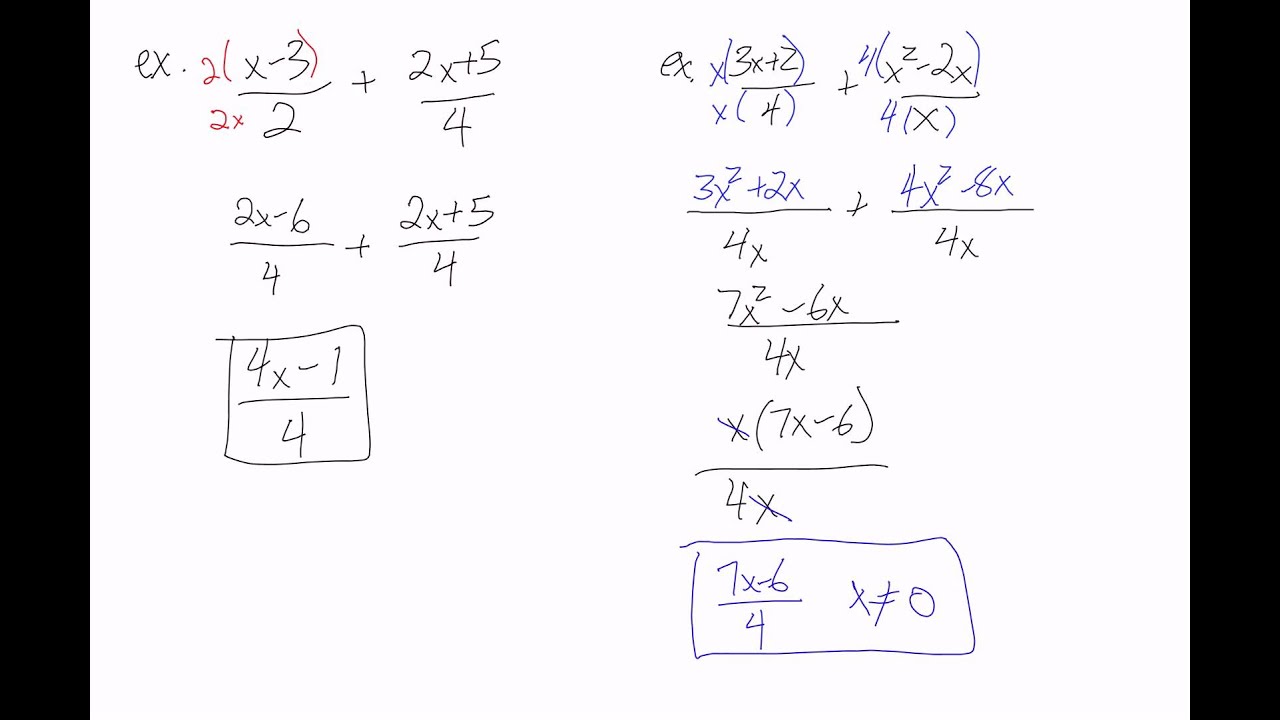 ex. 2(x-3)/2x2 + 2x+5/4
2x-6/4 + 2x+5/4
4x-1/4
ex. x(3x+2)/x(4) + 4(x²-2x)/4(x)
3x²+2x/4x + 4x²-8x/4x
7x²-6x/4x
x(7x-6)/4x
7x-6/4 x≠0